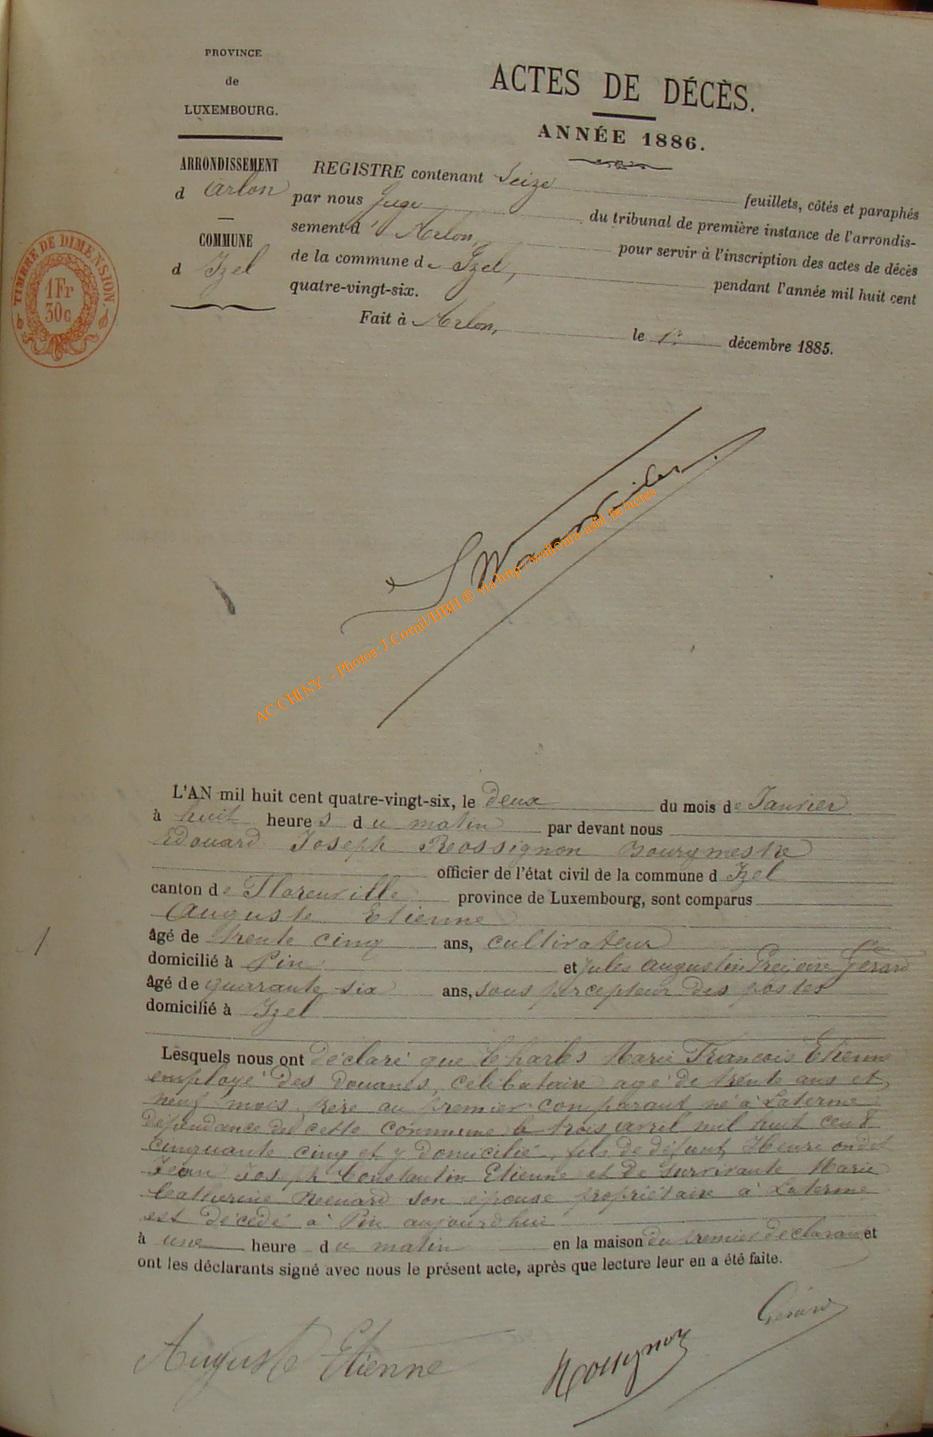 PROVINCE
de
LUXEMBOURG.
ARRONDISSEMENT
d Arlon
COMMUNE
d Izel
TIMBRE DE DIMENSION.
1Fr
30c
ACTES DE DÉCÈS.
ANNÉE 1886.
REGISTRE contenant Seize feuillets, côtés et paraphés
par nous Juge du tribunal de première instance de l'arrondis-
sement d'Arlon, pour servir à l'inscription des actes de décès
de la commune de Izel, pendant l'année mil huit cent
quatre-vingt-six.
Fait à Arlon, le 1er décembre 1885.
AC CHINY - Photos J.Cornil
L'AN mil huit cent quatre-vingt-six, le deux du mois de Janvier
à huit heures du matin par devant nous
Edouard Joseph Rossignon Bourgmestre
officier de l'état civil de la commune d Izel
canton de Florenville province de Luxembourg, sont comparus
Auguste Etienne
âgé de trente cinq ans, cultivateur
domicilié à Pin et Jules Augustin Gérard
âgé de quarante six ans, sous percepteur des postes
domicilié à Izel
1
Lesquels nous ont déclaré que Charles Marie François Etienne
employé des douanes, célibataire agé de trente ans et
neuf mois, frère au premier comparant né à Laterme
dépendance de cette commune le trois avril mil huit cent
cinquante cinq et y domicilié, fils de défunt Henri
Jean Joseph Constantin Etienne et de survivante Marie
Catherine Renard son épouse propriétaire à Laterme
est décédé à Pin aujourd'hui
à une heure du matin en la maison du premier déclarant et
ont les déclarants signé avec nous le présent acte, après que lecture leur en a été faite.
Auguste Etienne
Rossignon
Gérard